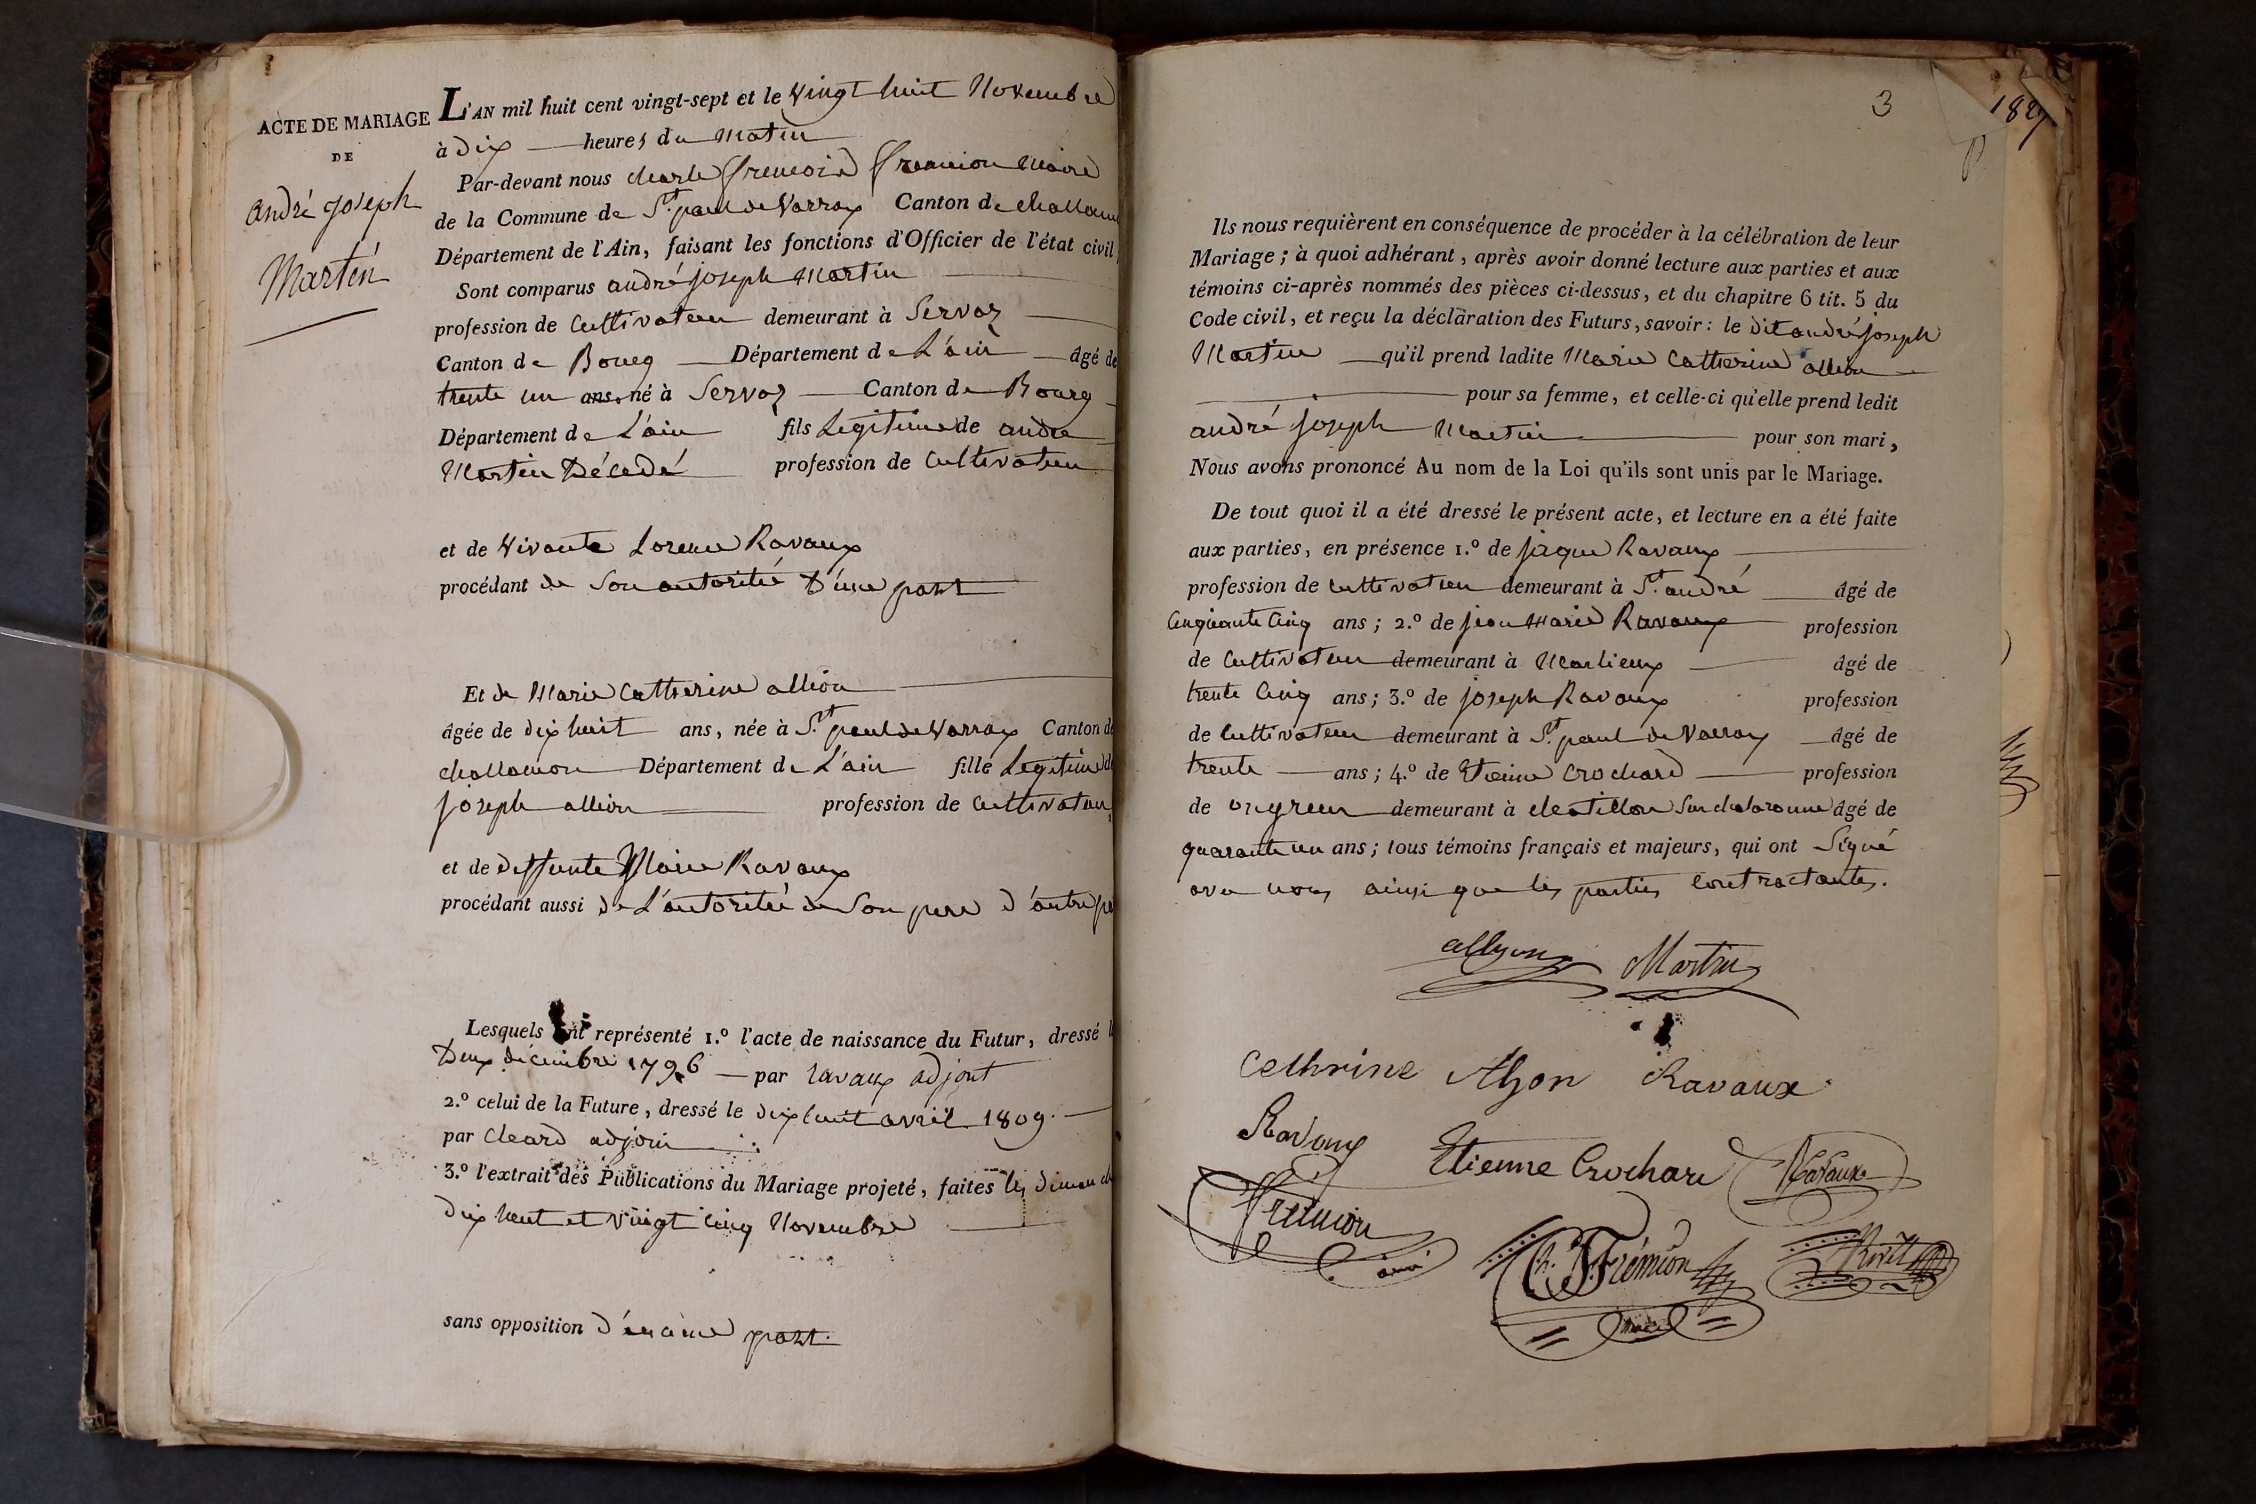 ACTE DE MARIAGE
DE
andré joseph
Martin
L'AN mil huit cent vingt-sept et le Vingt huit Novembre
à dix heures du matin
Par-devant nous charle francois fremion Maire
de la Commune de St. paul de Varrax Canton de challamon
Département de l'Ain, faisant les fonctions d'Officier de l'état civil,
Sont comparus andré joseph Martin
profession de Cultivateur demeurant à Servaz
Canton de Bourg Département de L'ain âgé de
trente un ans, né à Servaz Canton de Bourg
Département de L'ain fils Légitime de andré
Martin Décédé profession de Cultivateur
et de Vivante Ravaux
procédant de Son autoritée D'une part
Et de Marie Catherine allion
âgée de dix huit ans, née à St. paul de Varrax Canton de
challamon Département de L'ain fille Légitime de
joseph allion profession de Cultivateur
et de deffunte Marie Ravaux
procédant aussi de L'autoritée de Son pere d'autre
Lesquels ont représenté 1.º l'acte de naissance du Futur, dressé le
Deux décembre 1796 par ravaux adjont
2.º celui de la Future, dressé le dix huit avril 1809.
par adjoin
3.º l'extrait des Publications du Mariage projeté, faites les
dix huit et vingt cinq Novembre
sans opposition d'aucune part.
3
1827
Ils nous requièrent en conséquence de procéder à la célébration de leur
Mariage; à quoi adhérant, après avoir donné lecture aux parties et aux
témoins ci-après nommés des pièces ci-dessus, et du chapitre 6 tit. 5 du
Code civil, et reçu la déclaration des Futurs, savoir: le dit andré joseph
Martin qu'il prend ladite Marie Catherine allion
pour sa femme, et celle-ci qu'elle prend ledit
andré joseph Martin pour son mari,
Nous avons prononcé Au nom de la Loi qu'ils sont unis par le Mariage.
De tout quoi il a été dressé le présent acte, et lecture en a été faite
aux parties, en présence 1.º de jaque Ravaux
profession de cultivateur demeurant à St. andré âgé de
Cinquante Cinq ans; 2.º de jean Marie Ravaux profession
de Cultivateur demeurant à Marlieux âgé de
trente Cinq ans; 3.º de joseph Ravaux profession
de Cultivateur demeurant à St. paul de Varrax âgé de
trente ans; 4.º de Etienne Crochard profession
de demeurant à chatillon Sur chalaronne âgé de
quarante un ans; tous témoins français et majeurs, qui ont Signé
avec nous ainsi que les parties Contractantes.
allyon Martin
Cethrine Alyon Ravaux
Ravaux Etienne Crochard Ravaux
fremion Ch. F. Frémion
maire